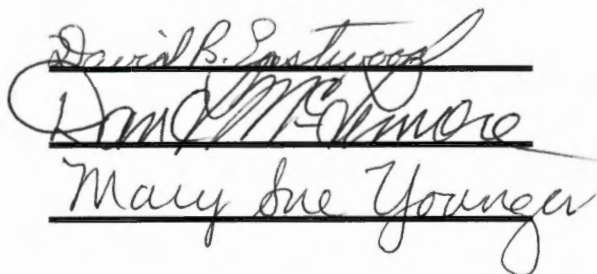 David B. Eastwood
David McLemore
Mary Sue Younger